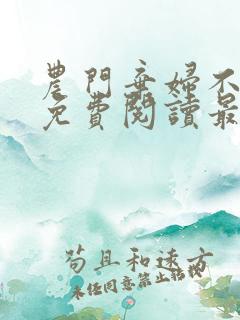 農門棄婦不
免費閱讀最
苟且和遠方
未經同意禁止轉載